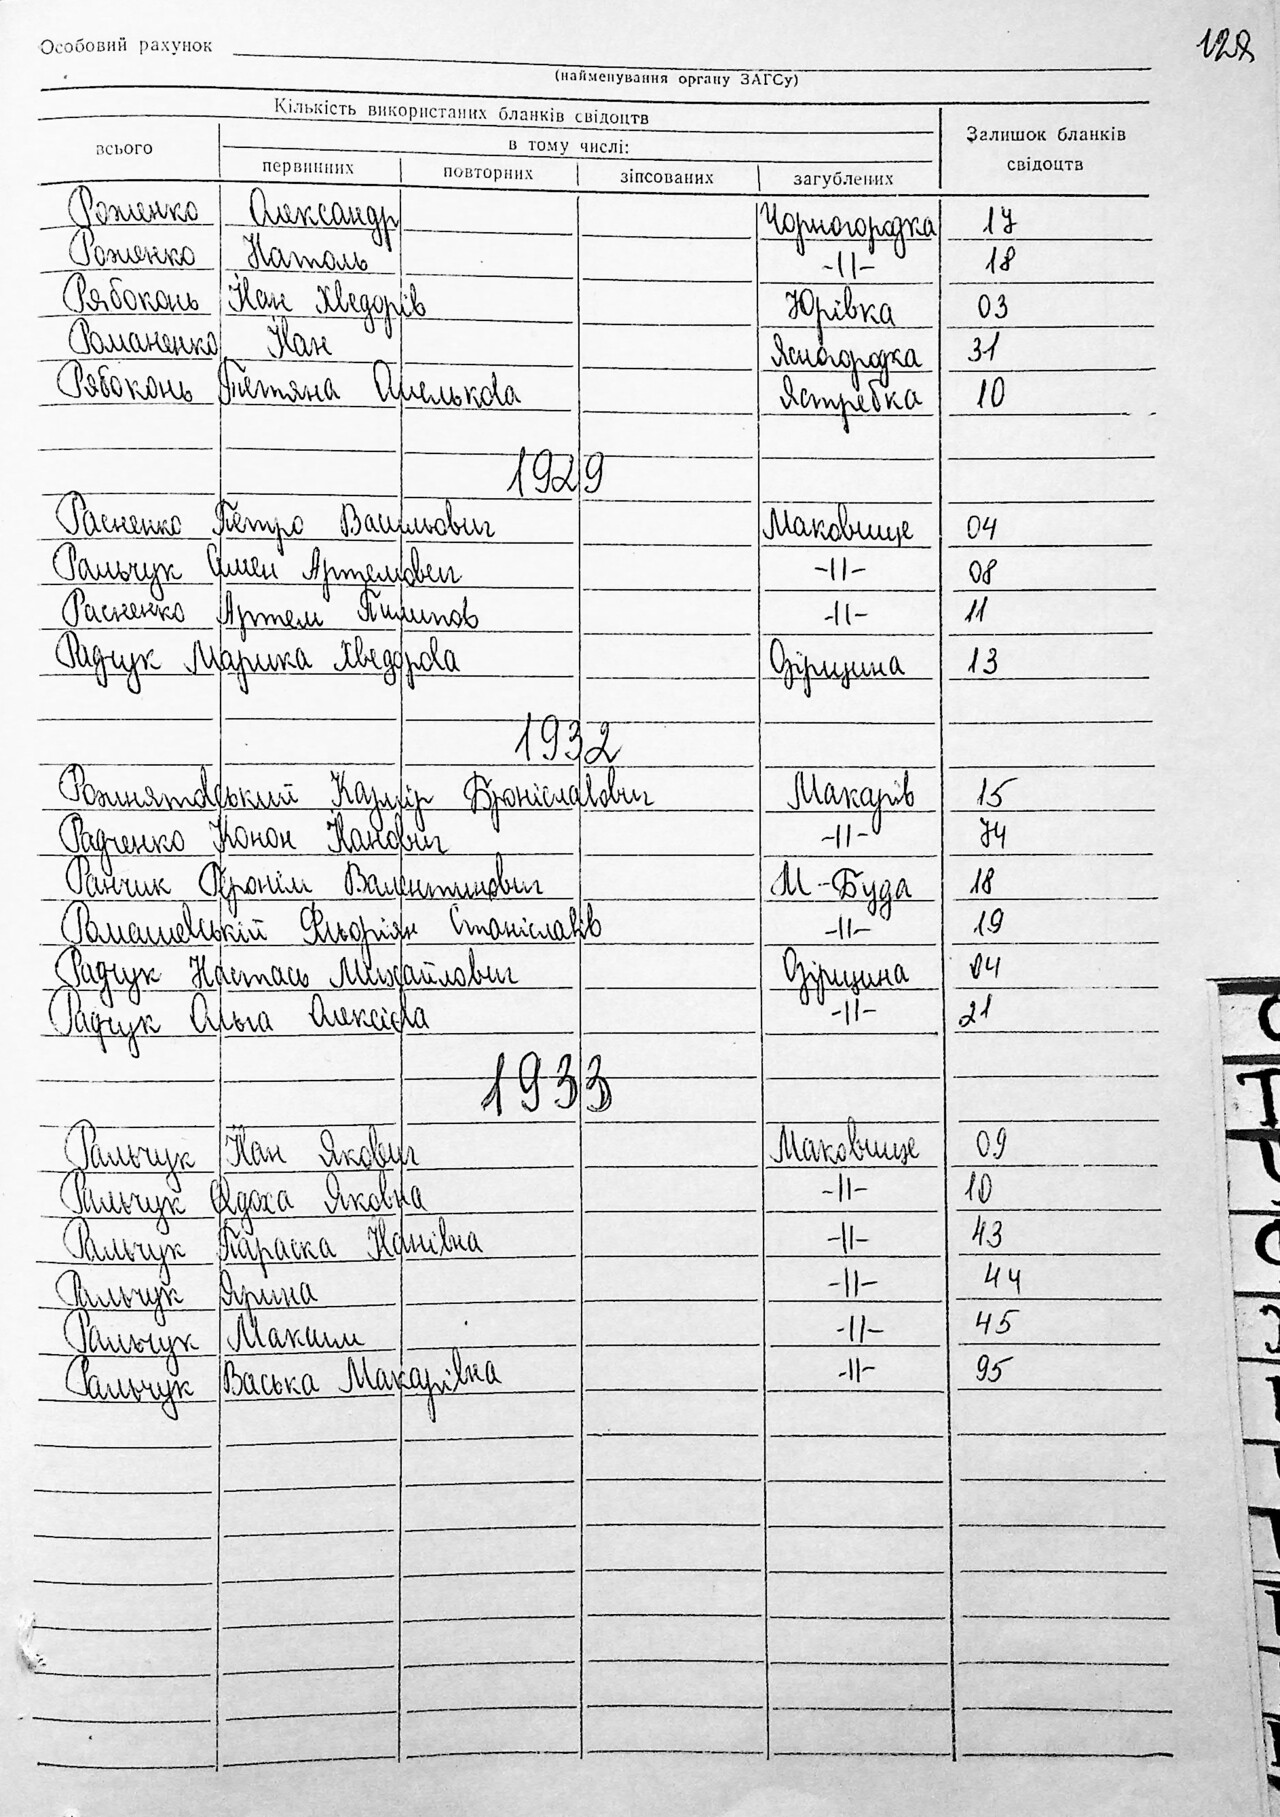 Особовий рахунок
(найменування органу ЗАГСу)
Кількість використаних бланків свідоцтв
Залишок бланків свідоцтв
всього
в тому числі:
первинних повторних зіпсованих загублених
Роженко Олександр Чорногородка 17
Роженко Натоль -||- 18
Рябоконь Йван Хведорів Юрівка 03
Романенко Йван Ясногородка 31
Рябоконь Тетяна Омелькова Ястребка 10
1929
Расненко Петро Васильович Маковище 04
Ральчук Семен Артемович -||- 08
Расненко Артем Пилипов -||- 11
Радчук Марика Хведорова Озірщина 13
1932
Рожнятовський Казмір Броніславович Макарів 15
Радченко Конон Йванович -||- 74
Ранчик Геронім Валентинович М-Буда 18
Ромашевський Фльоріян Станіславів -||- 19
Радчук Настась Михайлович Озірщина 04
Радчук Ольга Олексієва -||- 21
1933
Ральчук Йван Якович Маковище 09
Ральчук Явдоха Яковна -||- 10
Ральчук Параска Йванівна -||- 43
Ральчук Ярина -||- 44
Ральчук Максим -||- 45
Ральчук Васька Макарівна -||- 95